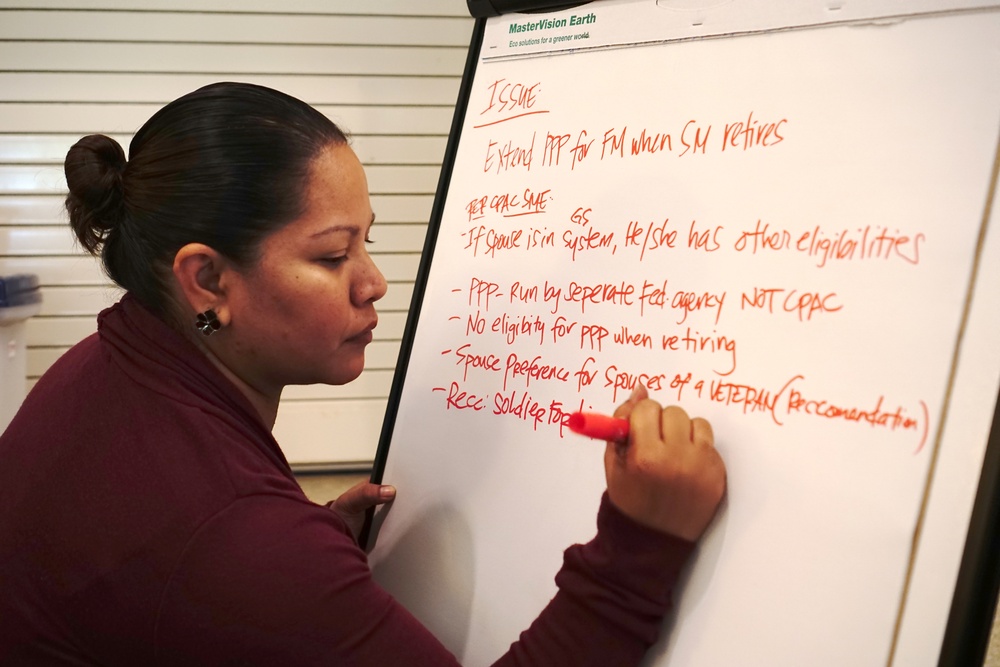 MasterVision Earth
Eco solutions for a greener world
ISSUE:
Extend PPP for FM when SM retires
PER CPAC SME:
GS
- If spouse is in system, He/she has other eligibilities
- PPP- Run by seperate Fed. agency NOT CPAC
- No eligibity for PPP when retiring
- Spouse Preference for spouses of a VETERAN (Reccomendation)
- Recc: Soldier